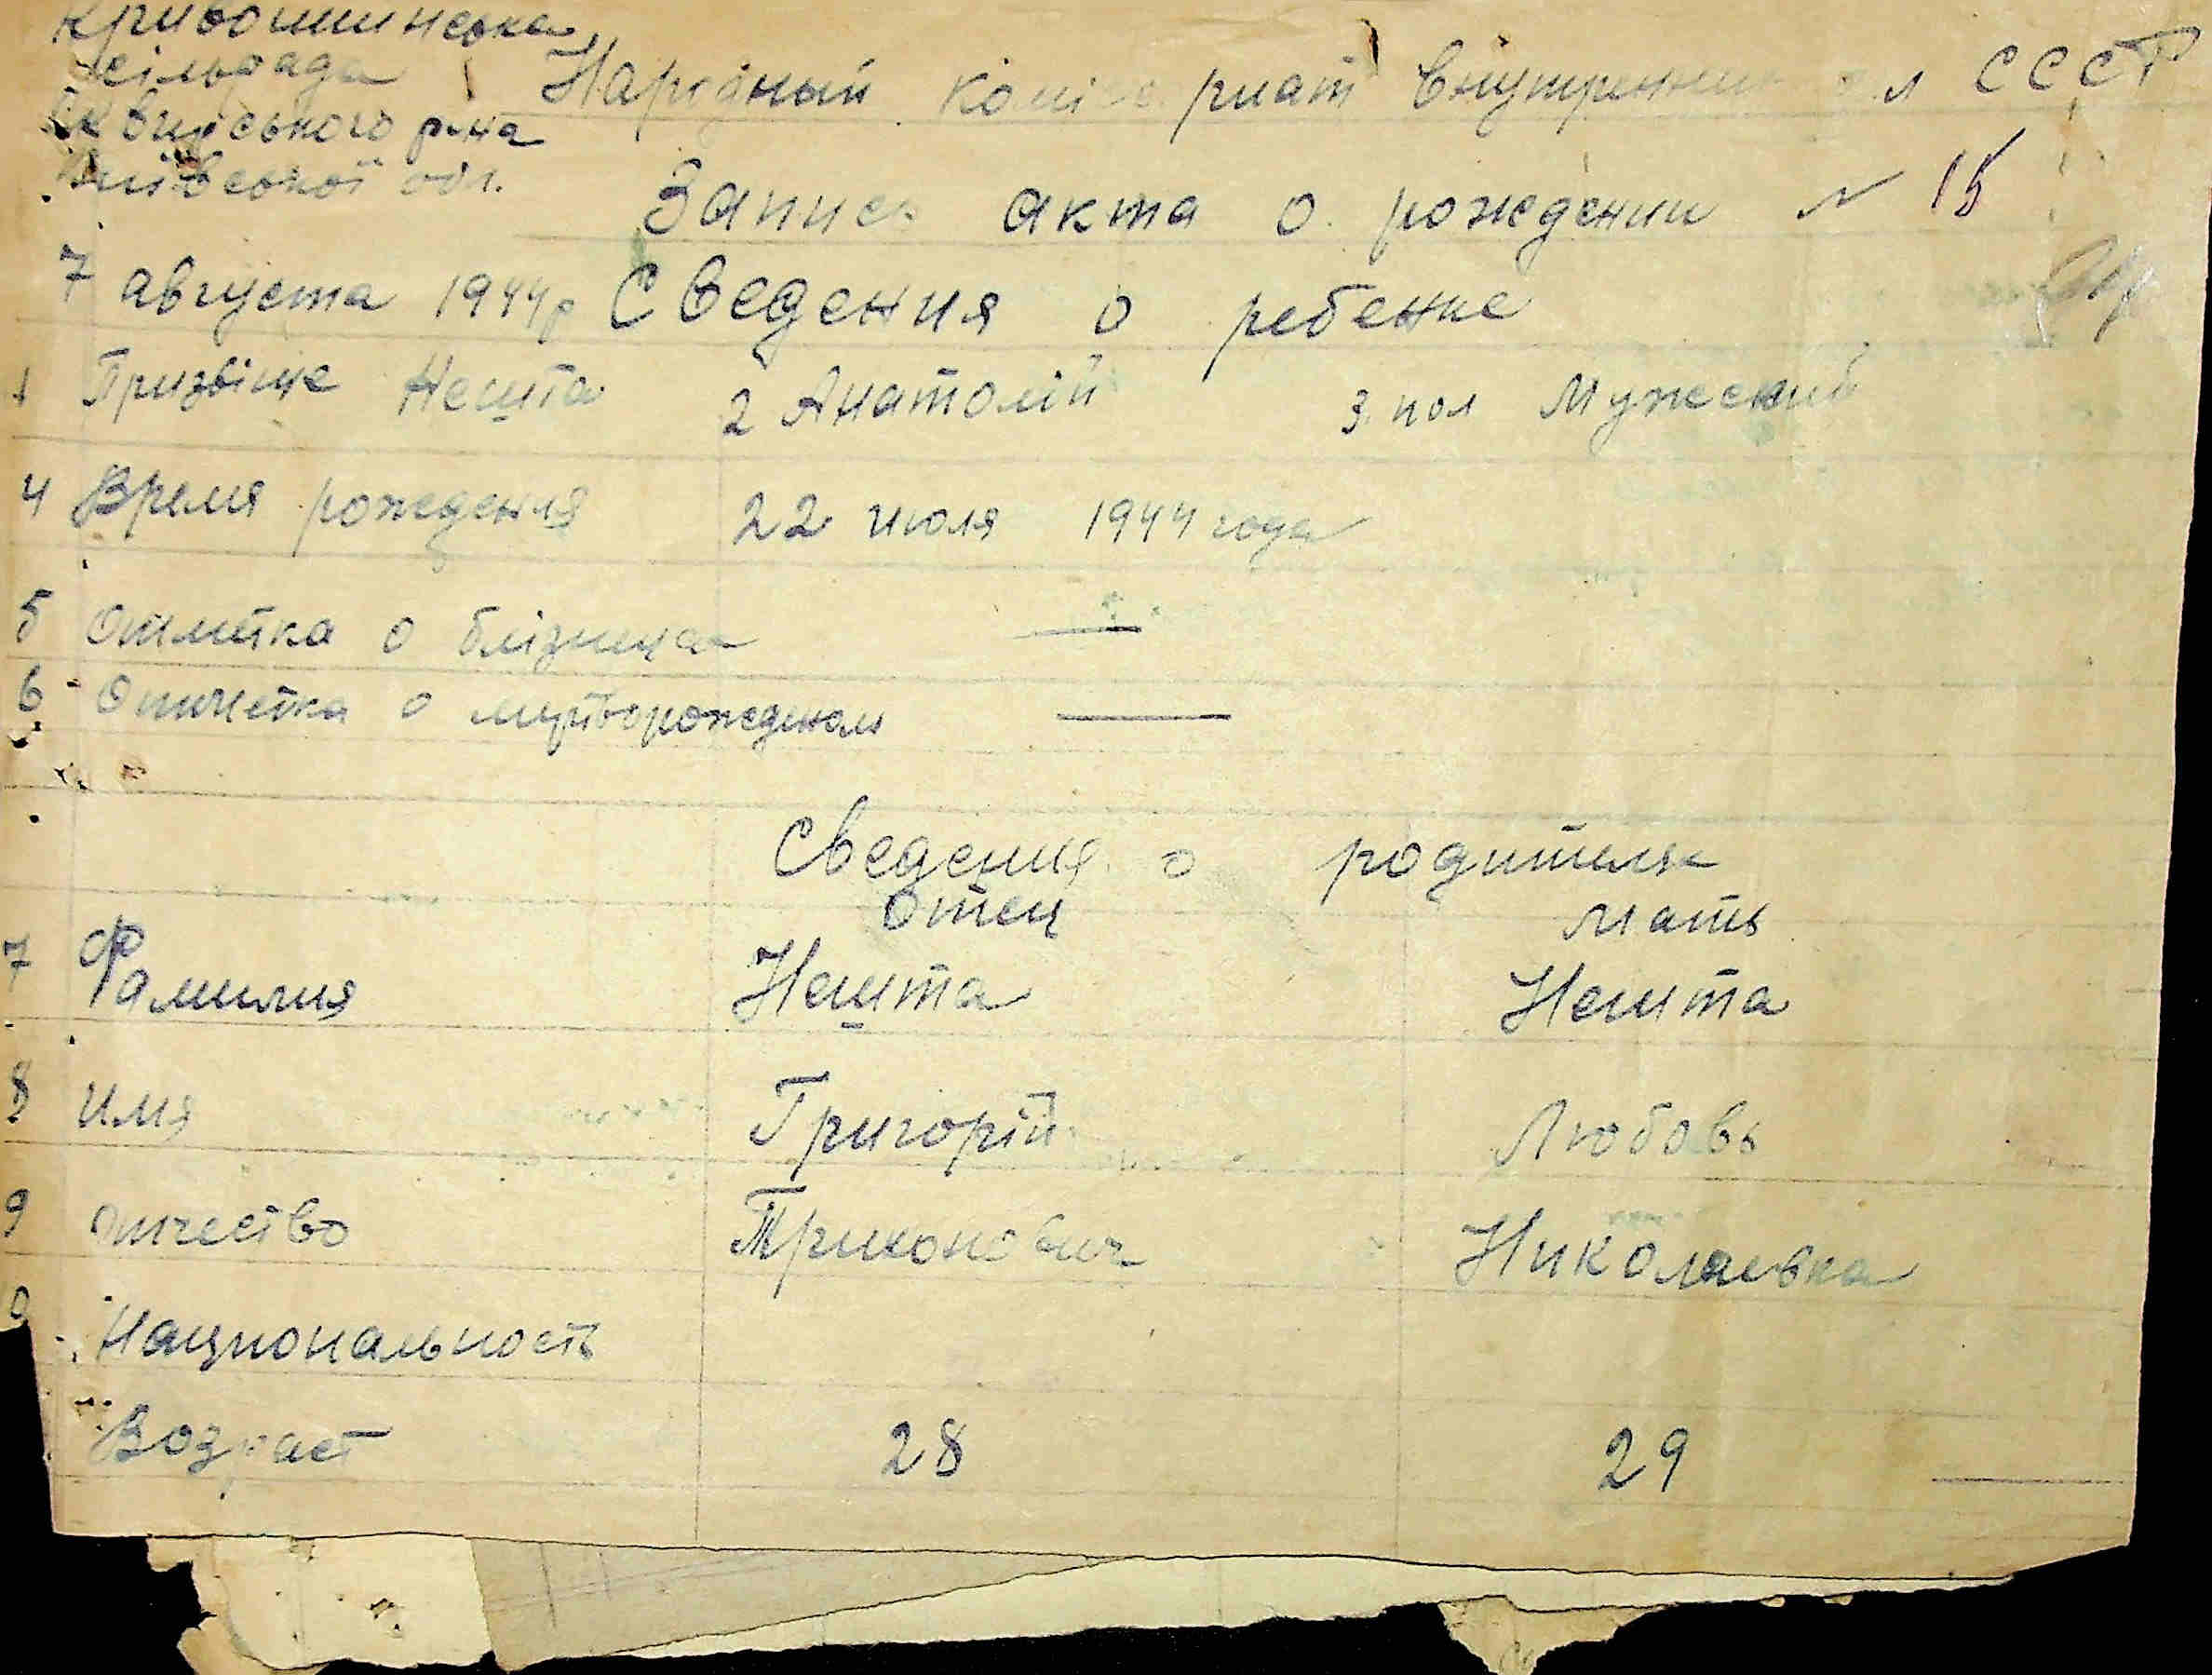 Кривошиинська
сільрада
Сквирського р-на
Київської обл.
Народный комісариат внутренних дел СССР
Запись акта о рождении № 15
7 августа 1944р Сведения о ребенке
1 Призвіще Нешта 2 Анатолій 3. пол Мужеский
4 Время рождения 22 июля 1944 года
5 Отметка облізнецах —
6 Отметка о мертворожденом —
Сведения о родителях
Отец Мать
7 Фамилия Нешта Нешта
8 Имя Григорій Любовь
9 отчество Николаевна
0 Национальность
Возраст 28 29 —